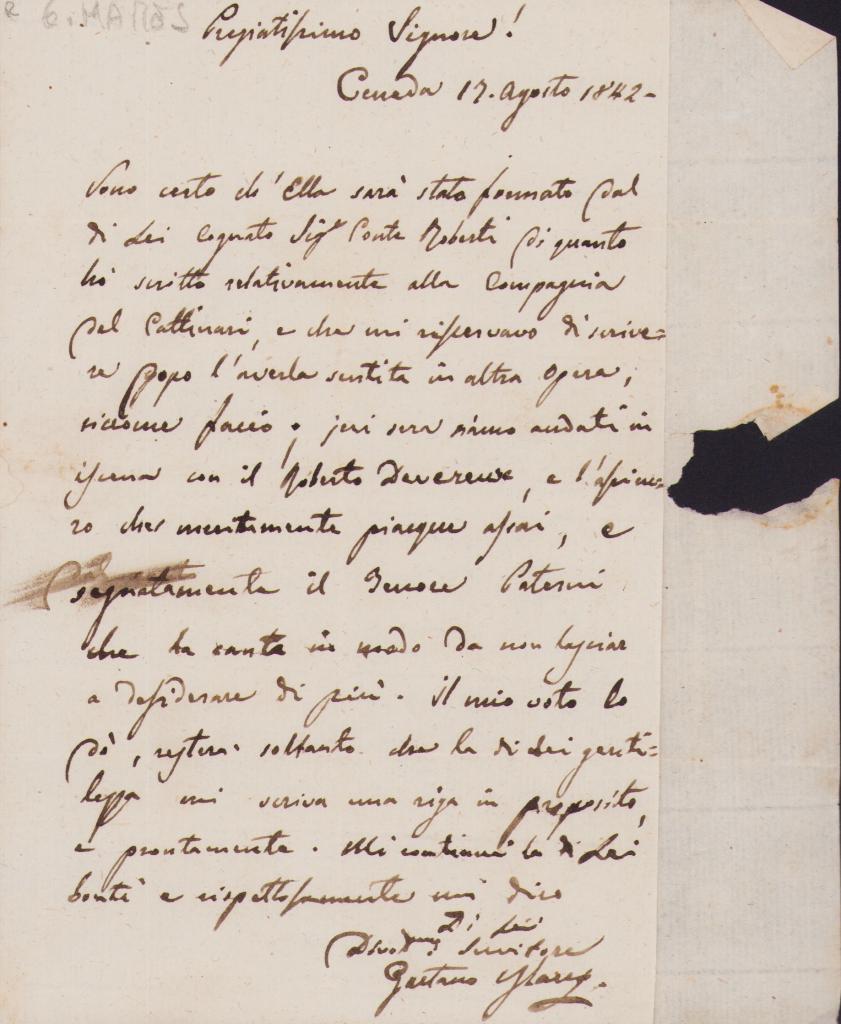 Pregiatissimo Signore!
Ceneda 17. Agosto 1842-
Sono certo ch'Ella sarà stato formato dal
di Lei Cognato Sigr Conte Roberti di quanto
hò scritto relativamente alla Compagnia
del Cattinari, e che mi risservavo di scrive=
re dopo l'averla sentita in altra Opera,
siccome faccio; jeri sera siamo andati in
iscena con il Roberto Devereux, e l'assicu=
ro che meritamente piacque assai, e
segnatamente il Tenore Paterni
che la canta in modo da non lasciar
a desiderare di più. Il mio voto lo
dò, resterà soltanto che la di Lei genti=
lezza mi scriva una riga in proposito,
e prontamente. Mi continui la di Lei
bontà e rispettosamente mi dico
Di Lei
Devotmo Servitore
Gaetano Mares.